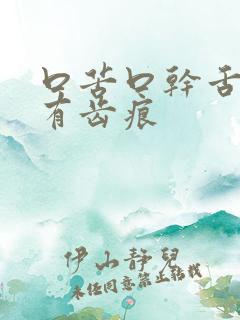 口苦口幹舌
有齿痕
伊山静兒
未经同意禁止转载